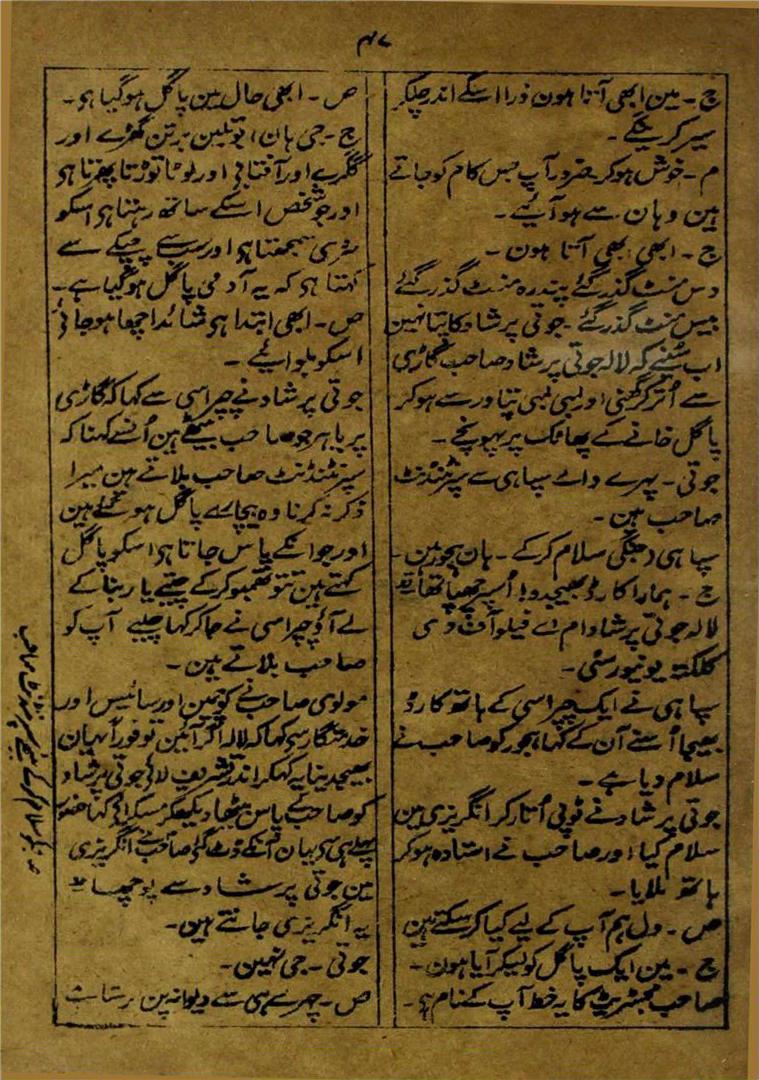 ۴۷
ج ۔ مین ابھی آتا ہون ذرا اسکے اندر چلکر
سیر کرینگے ۔
م ۔ خوش ہوکر ۔ ضرور آپ جس کام کو جاتے
ہین وہان سے ہو آئیے ۔
ج ۔ ابھی ابھی آتا ہون ۔
دس منٹ گذر گئے پندرہ منٹ گذر گئے
بیس منٹ گذر گئے ۔ جوتی پرشاد کا پتا نہین
اب سُنیے کہ لالہ جوتی پرشاد صاحب گاڑی
سے اُتر کر گھنی اور لمبی لمبی سے ہوکر
پاگل خانے کے پھاٹک پر پہونچے ۔
جوتی ۔ پہرے والے سپاہی سے سپرنٹنڈنٹ
صاحب ہین ۔
سپاہی دجنگی سلام کرکے ۔ ہان ہجور ہین ۔
ج ۔ ہمارا کارڈ بھیجدو ! اُسپر چھپا تھا
لالہ جوتی پرشاد ام اے فیلو آف دی
کلکتہ یونیورسٹی ۔
سپاہی نے ایک چپراسی کے ہاتھ کارڈ
بھیجا اُسنے آن کے کہا ہجور کو صاحب نے
سلام دیا ہے ۔
جوتی پرشاد نے ٹوپی اُتار کر انگریزی مین
سلام کیا اور صاحب نے استادہ ہوکر
ہاتھ ملایا ۔
ص ۔ ول ہم آپ کے لیے کیا کر سکتے ہین
ج ۔ مین ایک پاگل کو لیکر آیا ہون ۔
صاحب مجسٹریٹ کا یہ خط آپ کے نام ہے ۔
ص ۔ ابھی حال مین پاگل ہوگیا ہی ۔
ج ۔ جی ہان ، بوتلین برتن گھڑے اور
گگرے اور آفتابی اور لوٹا توڑتا پھرتا ہی
اور جو شخص اسکے ساتھ رہتا ہی اسکو
سڑی سمجھتا ہی اور سب سے چپکے سے
کہتا ہی کہ یہ آدمی پاگل ہوگیا ہے ۔
ص ۔ ابھی ابتدا ہی شائد اچھا ہو جائے
اسکو بلوائیے ۔
جوتی پرشاد نے چپراسی سے کہا کہ گاڑی
پر باہر جو صاحب بیٹھے ہین اُنسے کہنا کہ
سپرنٹنڈنٹ صاحب بلاتے ہین میرا
ذکر نہ کرنا وہ بیچارے پاگل ہو گئے ہین
اور جو انکے پاس جاتا ہی اسکو پاگل
کہتے ہین تتو تھمبو کرکے چتے یار بنا کے
لے آؤ چپراسی نے جاکر کہا چلیے آپ کو
صاحب بلاتے ہین ۔
مولوی صاحب نے کوچمین اور سائیس اور
خدمتگار سے کہا کہ لالہ اگر آئین تو فوراً یہان
بھیجدینا یہ کہکر اندر تشریف لائے جوتی پرشاد
کو صاحب کے پاس بیٹھا دیکھکر مسکرائے کہا حضور
پہلے ہی سے یہان آنکے ڈٹ گئے صاحب نے انگریزی
مین جوتی پرشاد سے پوچھا
یہ انگریزی جانتے ہین ۔
جوتی ۔ جی نہین ۔
ص ۔ چہرے ہی سے دیوانہ پن برستا ہے